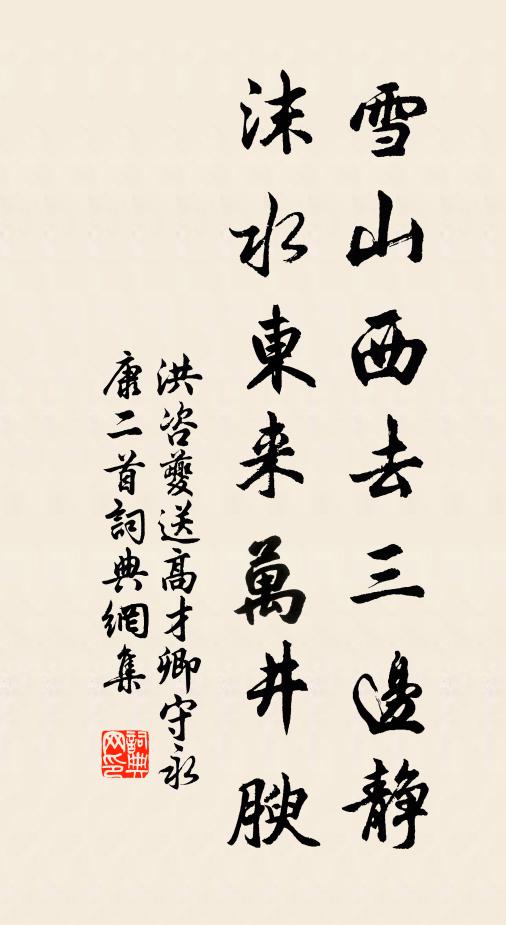 雪山西去三邊静
沫水東来萬井腴
洪咨夔送高才卿守永
康二首詞典網集
詞典
网印